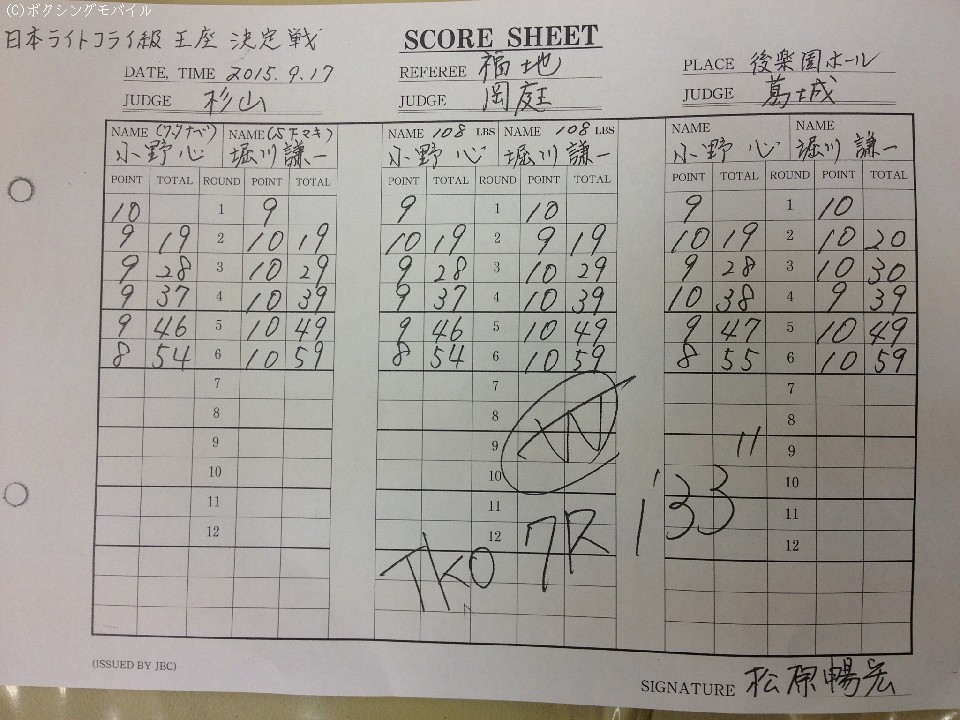 (C)ボクシングモバイル
日本ライトフライ級 王座 決定戦
SCORE SHEET
DATE, TIME 2015.9.17 REFEREE 福地 PLACE 後楽園ホール
JUDGE 杉山 JUDGE 岡庭 JUDGE 葛城
NAME (ワタナベ) NAME (SFマキ) NAME 108 LBS NAME 108 LBS NAME NAME
小野心 堀川謙一 小野心 堀川謙一 小野心 堀川謙一
POINT TOTAL ROUND POINT TOTAL POINT TOTAL ROUND POINT TOTAL POINT TOTAL ROUND POINT TOTAL
10 1 9 9 1 10 9 1 10
9 19 2 10 19 10 19 2 9 19 10 19 2 10 20
9 28 3 10 29 9 28 3 10 29 9 28 3 10 30
9 37 4 10 39 9 37 4 10 39 10 38 4 9 39
9 46 5 10 49 9 46 5 10 49 9 47 5 10 49
8 54 6 10 59 8 54 6 10 59 8 55 6 10 59
7 7 7
8 8 8
9 9 9
10 10 10
11 11 11
12 12 12
TKO 7R 1'33"
(ISSUED BY JBC)
SIGNATURE 松原暢宏